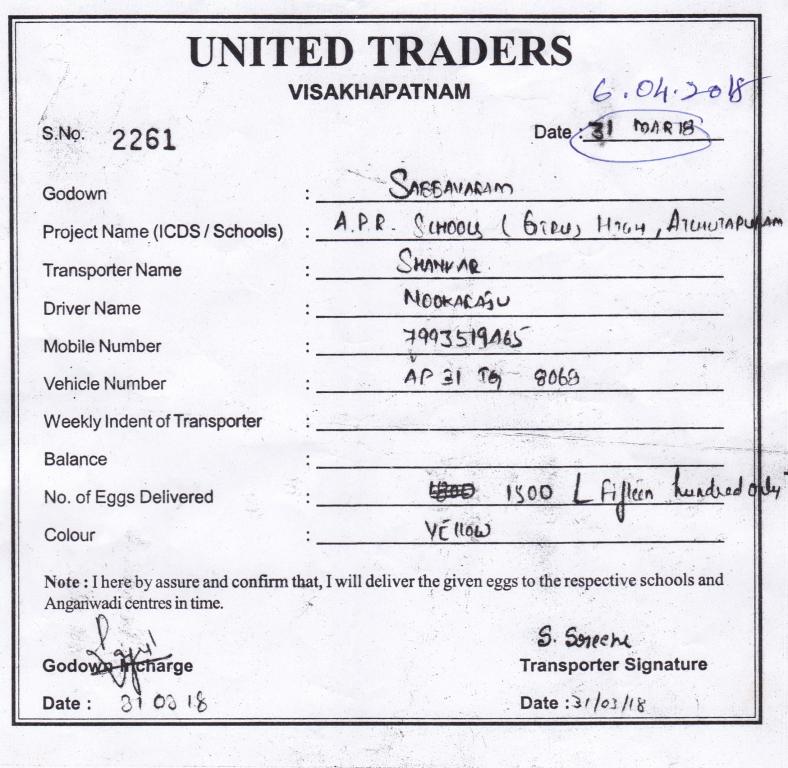 UNITED TRADERS
VISAKHAPATNAM
6.04.2018
S.No. 2261
Date : 31 MAR 18
Godown : SABBAVARAM
Project Name (ICDS / Schools) : A.P.R. SCHOOLS (GIRLS) HIGH, ATCHUTAPURAM
Transporter Name : SHANKAR
Driver Name : NOOKARAJU
Mobile Number : 7993519465
Vehicle Number : AP 31 TG 8068
Weekly Indent of Transporter :
Balance :
No. of Eggs Delivered : 1500 ( Fifteen hundred only
Colour : YEllow
Note : I here by assure and confirm that, I will deliver the given eggs to the respective schools and
Anganwadi centres in time.
S. Sreenu
Godown Incharge
Transporter Signature
Date : 31 03 18
Date : 31/03/18